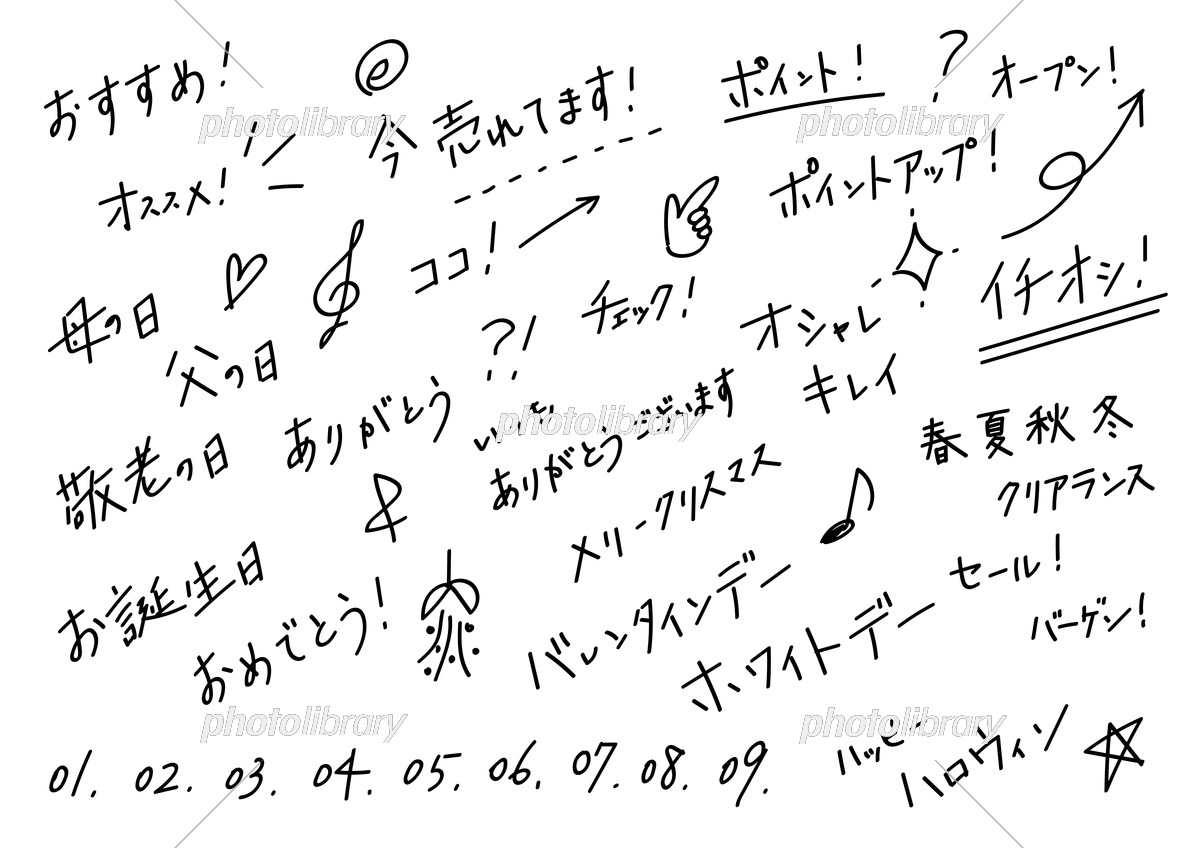 おすすめ!
今 売れてます!
ポイント!
?
オープン!
オススメ!
ココ!
ポイントアップ!
母の日
父の日
?!
チェック!
オシャレ
キレイ
イチオシ!
敬老の日
ありがとう
いつも
ありがとうございます
メリークリスマス
春 夏 秋 冬
クリアランス
お誕生日
おめでとう!
バレンタインデー
ホワイトデー
セール!
バーゲン!
01. 02. 03. 04. 05. 06. 07. 08. 09.
ハッピー
ハロウィン
photolibrary
photolibrary
photolibrary
photolibrary
photolibrary